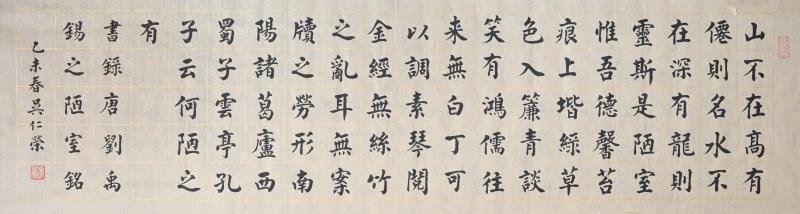 山不在髙有
僊則名水不
在深有龍則
靈斯是陋室
惟吾德馨苔
痕上堦綠草
色入簾青談
笑有鴻儒往
来無白丁可
以調素琴閱
金經無絲竹
之亂耳無案
牘之勞形南
陽諸葛廬西
蜀子雲亭孔
子云何陋之
有
書錄唐劉禹
錫之陋室銘
乙未春吳仁榮